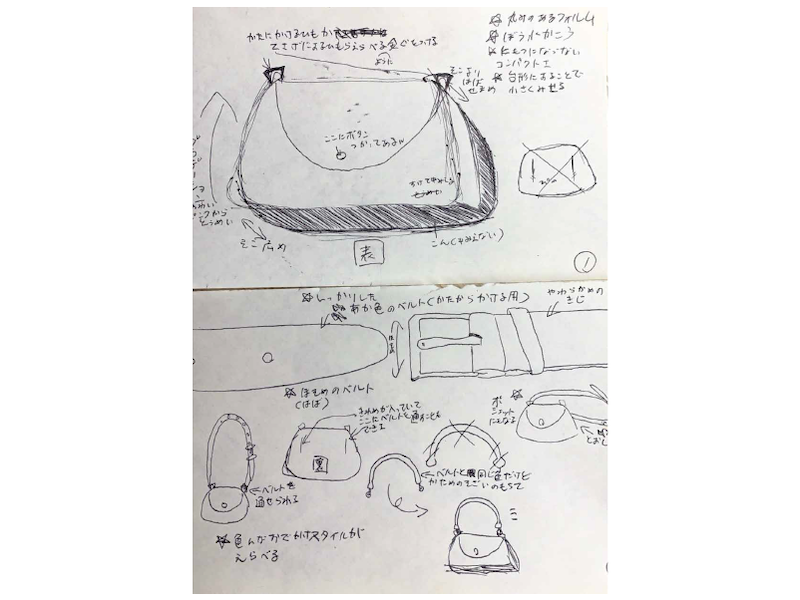 かたにかけるひもか
てさげにするひもえらべる金ぐをつける
ように
☆ 丸みのあるフォルム
☆ ぼう水かこう
☆ にもつにならない
コンパクトさ
☆ 台形にすることで
小さくみせる
そこより
はば
せまめ
ここにボタン
つかってある
すけて中みしな
からとうめい
そこ広め
こん(中みえない)
表
1
☆ しっかりした
あか色のベルト(かたからかける用)
やわらかめの
きじ
☆ ほそめのベルト
(はば)
きれめが入っていて
ここにベルトを通すことも
できる
裏
☆ ポ
シェット
になる
とおし
ベルトを
通せられる
ベルトと同じ色だけど
かためのほそいのもちて
☆ 色んなおでかけスタイルが
えらべる